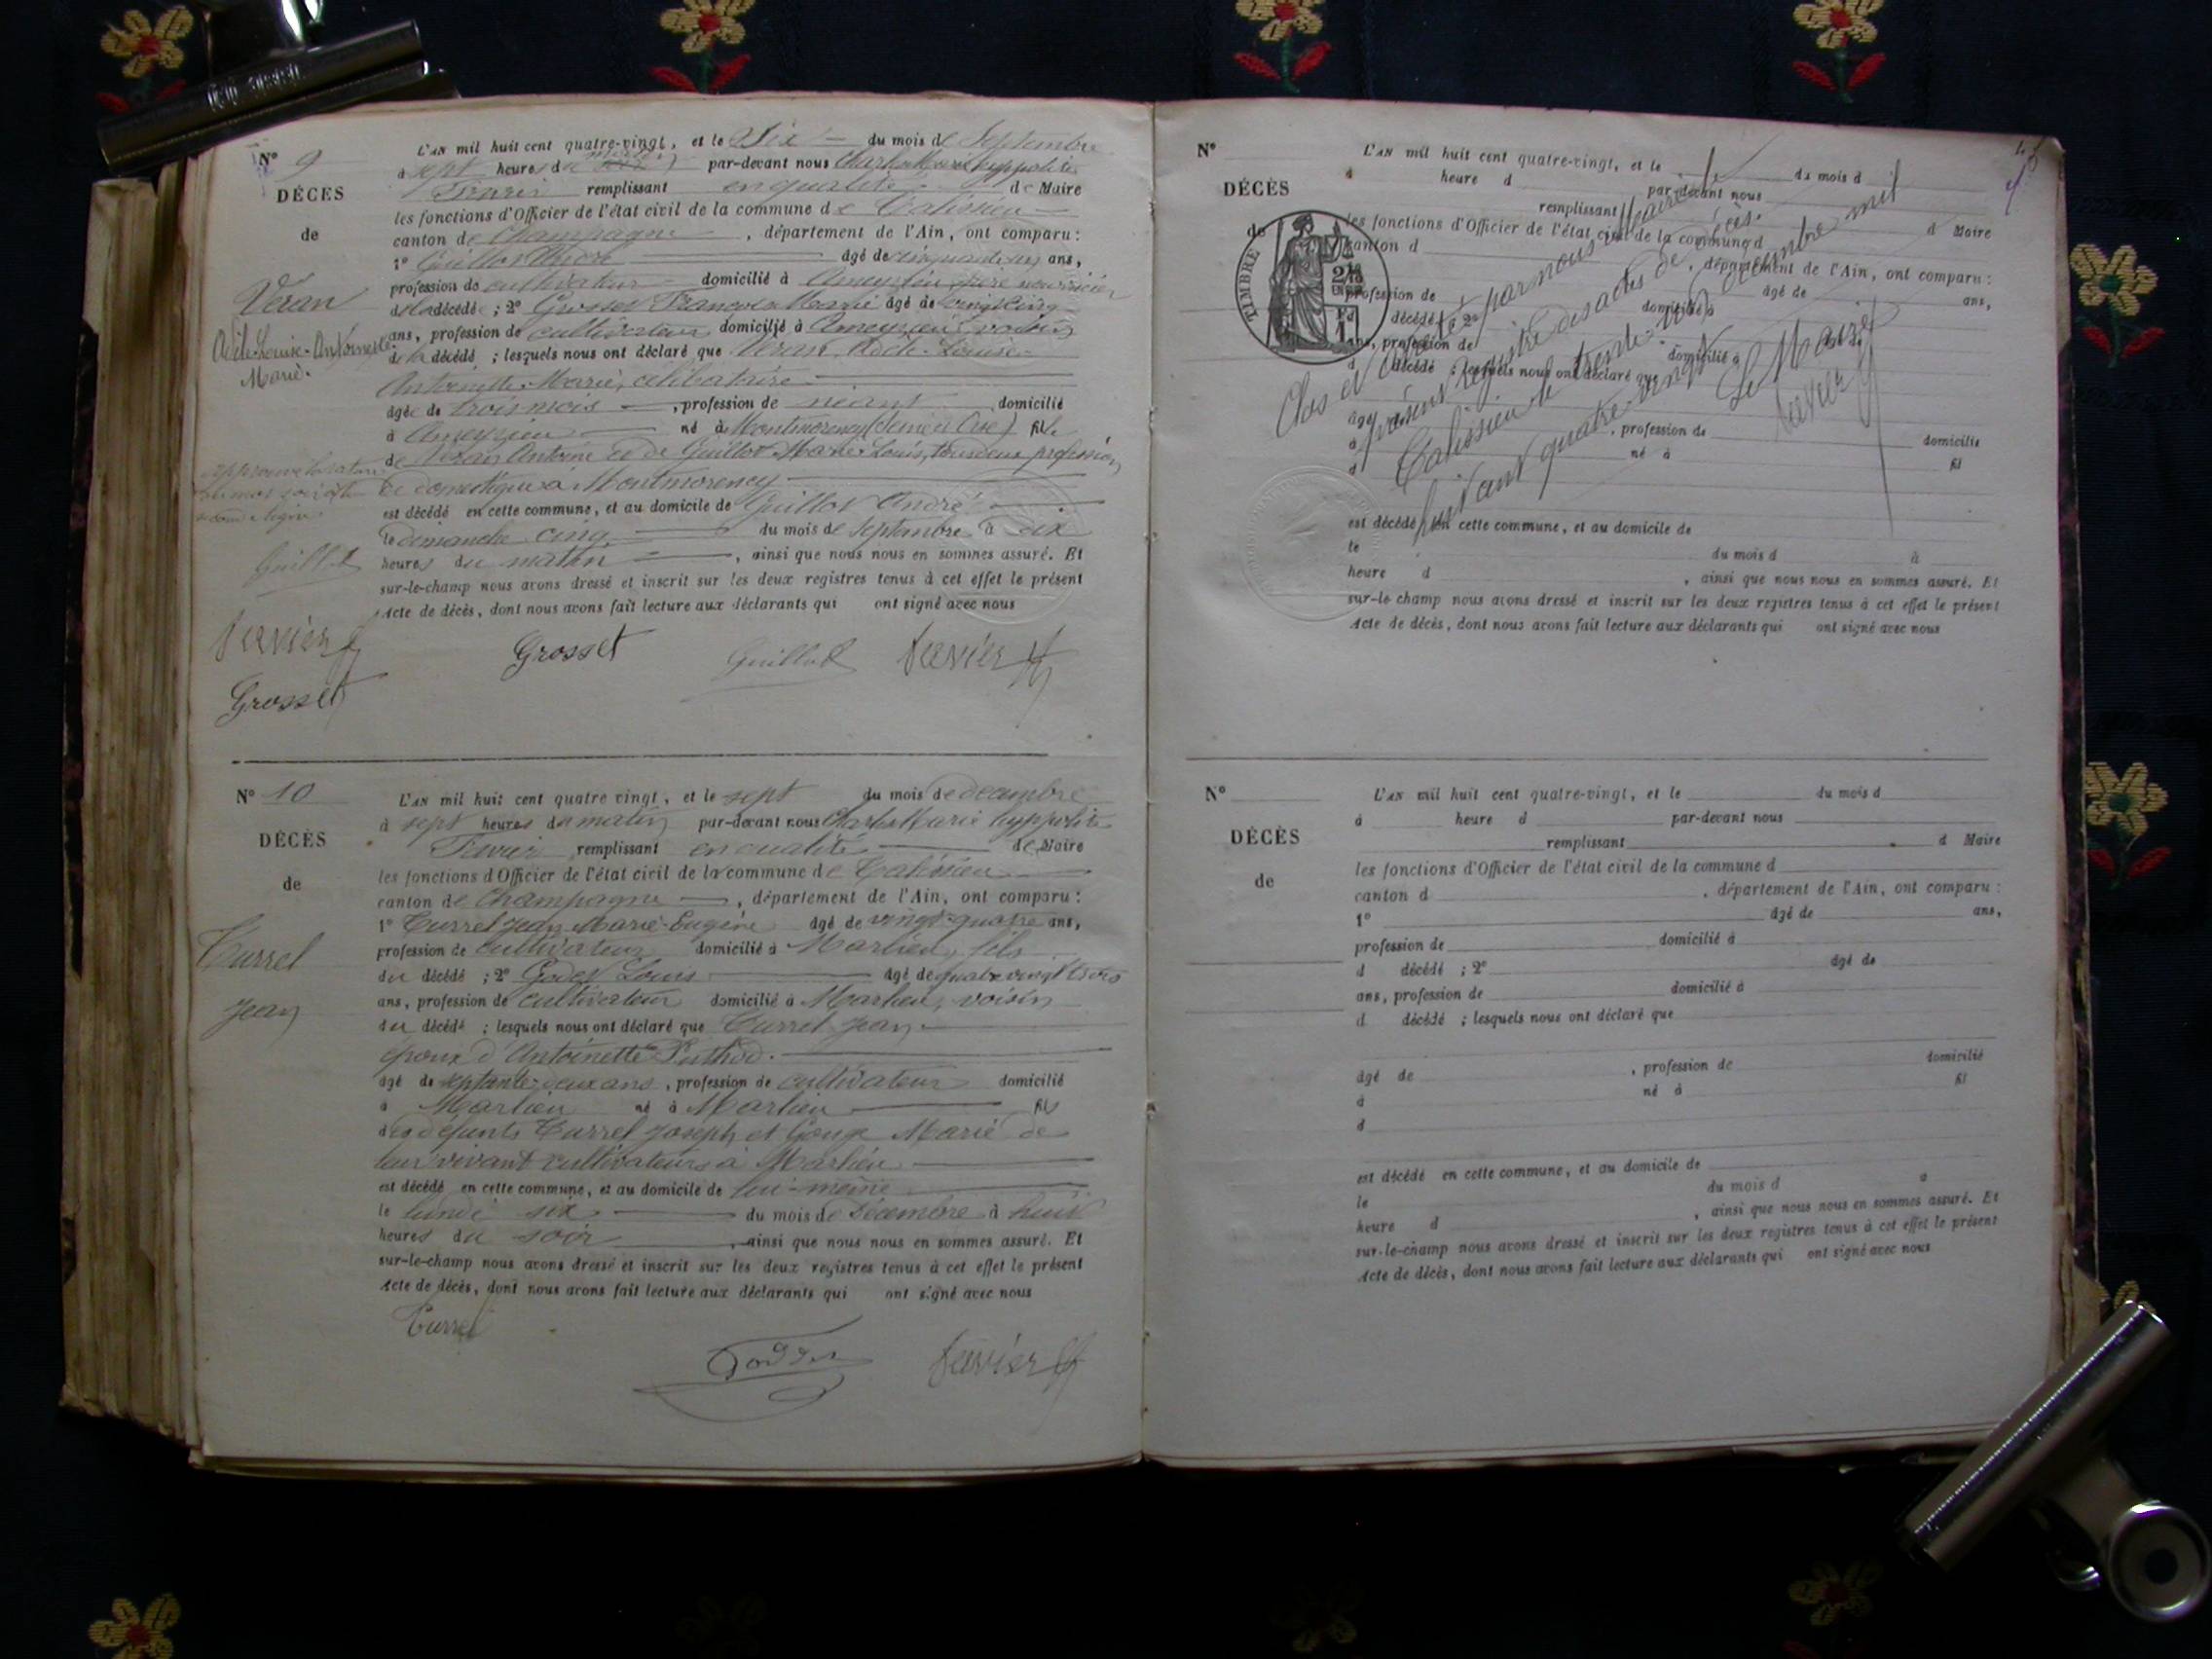 N° 9
DÉCES
de
Veran
Adèle-Louise-Antoinette
Marie.
L'AN mil huit cent quatre-vingt, et le Six du mois de Septembre
à sept heures du matin par-devant nous Charles Marie hyppolite
remplissant en qualité de Maire
les fonctions d'Officier de l'état civil de la commune de Talissieu
canton de Champagne, département de l'Ain, ont comparu:
1° Guillot André âgé de ans,
profession de cultivateur domicilié à Ameyzieu, père nourricier
de la décédé; 2° Grosset François Marie âgé de vingt cinq
ans, profession de cultivateur domicilié à Ameyzieu voisin
de la décédé; lesquels nous ont déclaré que Veran Adèle-Louise
Antoinette-Marie, célibataire
âgée de trois mois, profession de néant domicilié
à Ameyzieu né à Montmorency (Seine et Oise) fille
de Veran Antoine et de Guillot Marie-Louis, tous deux profession
de domestique à Montmorency
est décédé en cette commune, et au domicile de Guillot André
le dimanche cinq du mois de Septembre à dix
heures du matin, ainsi que nous nous en sommes assuré. Et
sur-le-champ nous avons dressé et inscrit sur les deux registres tenus à cet effet le présent
Acte de décès, dont nous avons fait lecture aux déclarants qui ont signé avec nous
Guillot
Grosset
Grosset Guillot
N° 10
DÉCÈS
de
Turrel
Jean
L'AN mil huit cent quatre vingt, et le sept du mois de decembre
à sept heures du matin par-devant nous Charles Marie hyppolite
remplissant en qualité de Maire
les fonctions d'Officier de l'état civil de la commune de Talissieu
canton de Champagne, département de l'Ain, ont comparu:
1° Turrel Jean Marie-Eugène âgé de vingt-quatre ans,
profession de cultivateur domicilié à Marlieu, fils
du décédé; 2° Godet Louis âgé de quatre vingt trois
ans, profession de cultivateur domicilié à Marlieu, voisin
du décédé; lesquels nous ont déclaré que Turrel Jean
époux d'Antoinette Puthod.
âgé de septante-deux ans, profession de cultivateur domicilié
à Marlieu né à Marlieu fils
des défunts Turrel Joseph et Gouge Marie de
leur vivant cultivateurs à Marlieu
est décédé en cette commune, et au domicile de lui-même
le lundi six du mois de Décembre à huit
heures du soir, ainsi que nous nous en sommes assuré. Et
sur-le-champ nous avons dressé et inscrit sur les deux registres tenus à cet effet le présent
Acte de décès, dont nous avons fait lecture aux déclarants qui ont signé avec nous
Turrel
N°
DÉCÈS
de
TIMBRE
L'AN mil huit cent quatre-vingt, et le du mois d
à heure d par-devant nous
remplissant d Maire
les fonctions d'Officier de l'état civil de la commune d
canton d, département de l'Ain, ont comparu:
âgé de ans,
profession de domicilié à
d décédé; 2° âgé de
ans, profession de domicilié à
d décédé; lesquels nous ont déclaré que
âgé, profession de domicilié
à né à fil
d
Clos et par nous Maire
présent registre des actes de décès.
Talissieu le trente-un décembre mil
huit cent quatre-vingt
Le Maire
est décédé en cette commune, et au domicile de
le du mois d à
heure d, ainsi que nous nous en sommes assuré. Et
sur-le champ nous avons dressé et inscrit sur les deux registres tenus à cet effet le présent
Acte de décès, dont nous avons fait lecture aux déclarants qui ont signé avec nous
N°
DÉCÈS
de
L'AN mil huit cent quatre-vingt, et le du mois d
à heure d par-devant nous
remplissant d Maire
les fonctions d'Officier de l'état civil de la commune d
canton d, département de l'Ain, ont comparu:
1° âgé de ans,
profession de domicilié à
d décédé; 2° âgé de
ans, profession de domicilié à
d décédé; lesquels nous ont déclaré que
âgé de, profession de domicilié
à né à fil
d
est décédé en cette commune, et au domicile de
le du mois d à
heure d, ainsi que nous nous en sommes assuré. Et
sur-le-champ nous avons dressé et inscrit sur les deux registres tenus à cet effet le présent
Acte de décès, dont nous avons fait lecture aux déclarants qui ont signé avec nous